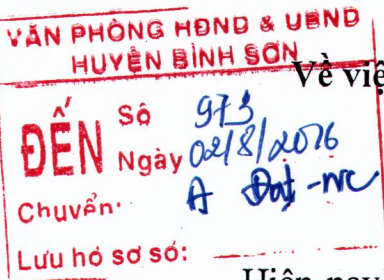 VĂN PHÒNG HĐND & UBND
HUYỆN BÌNH SƠN
Về việ
ĐẾN
Số 973
Ngày 02/8/2016
Chuyển: A Đạt - NC
Lưu hồ sơ số:
Hiện nay